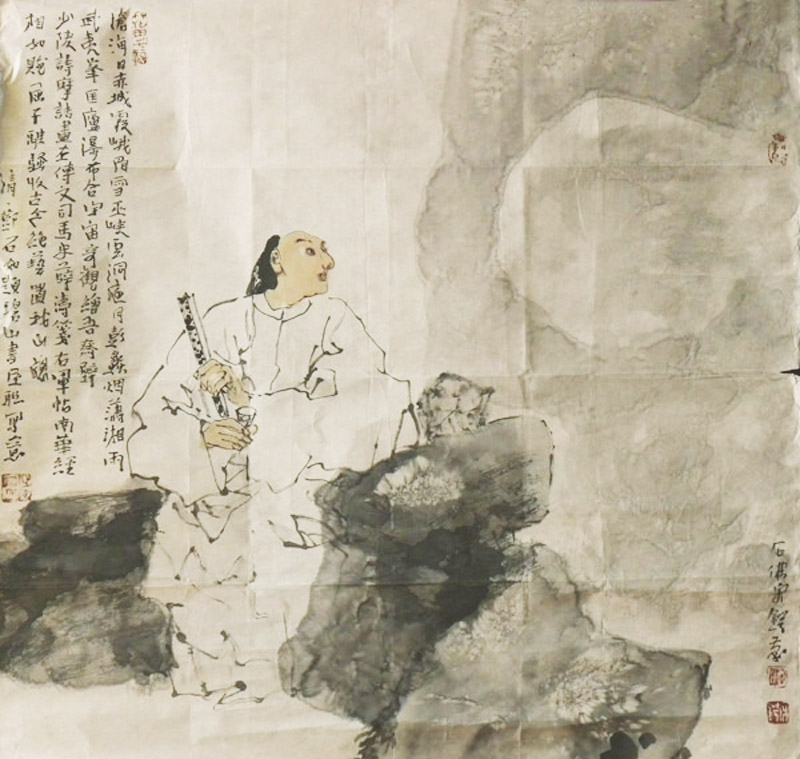 滄海日赤城霞峨眉雪巫峽雲洞庭月彭蠡烟瀟湘雨
武夷峯匡廬瀑布合宇宙奇觀繪吾齋壁
少陵詩摩詰畫左傳文司馬史薛濤箋右軍帖南華經
相如賦屈子離騷收古今絕藝置我山牕
清鄧石如題碧山書屋聯寫意
石佛